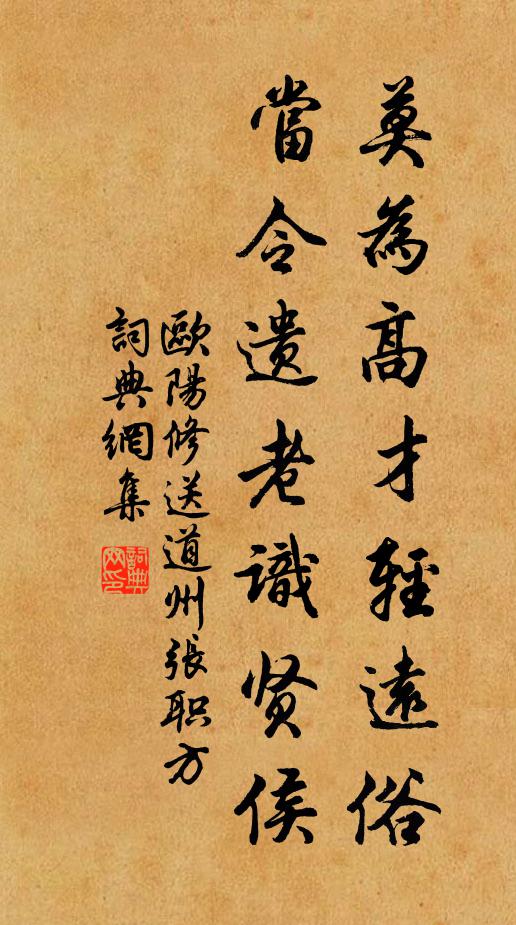 莫為高才輕遠俗
當令遺老識贤侯
歐陽修送道州張职方
詞典網集
詞典網印